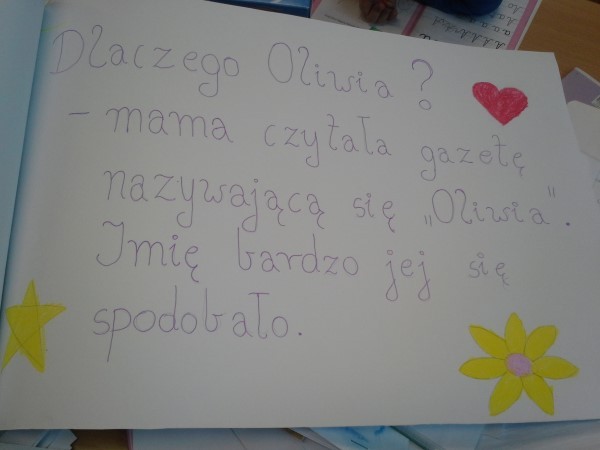 Dlaczego Oliwia?
- mama czytała gazetę
nazywającą się „Oliwia".
Imię bardzo jej się
spodobało.